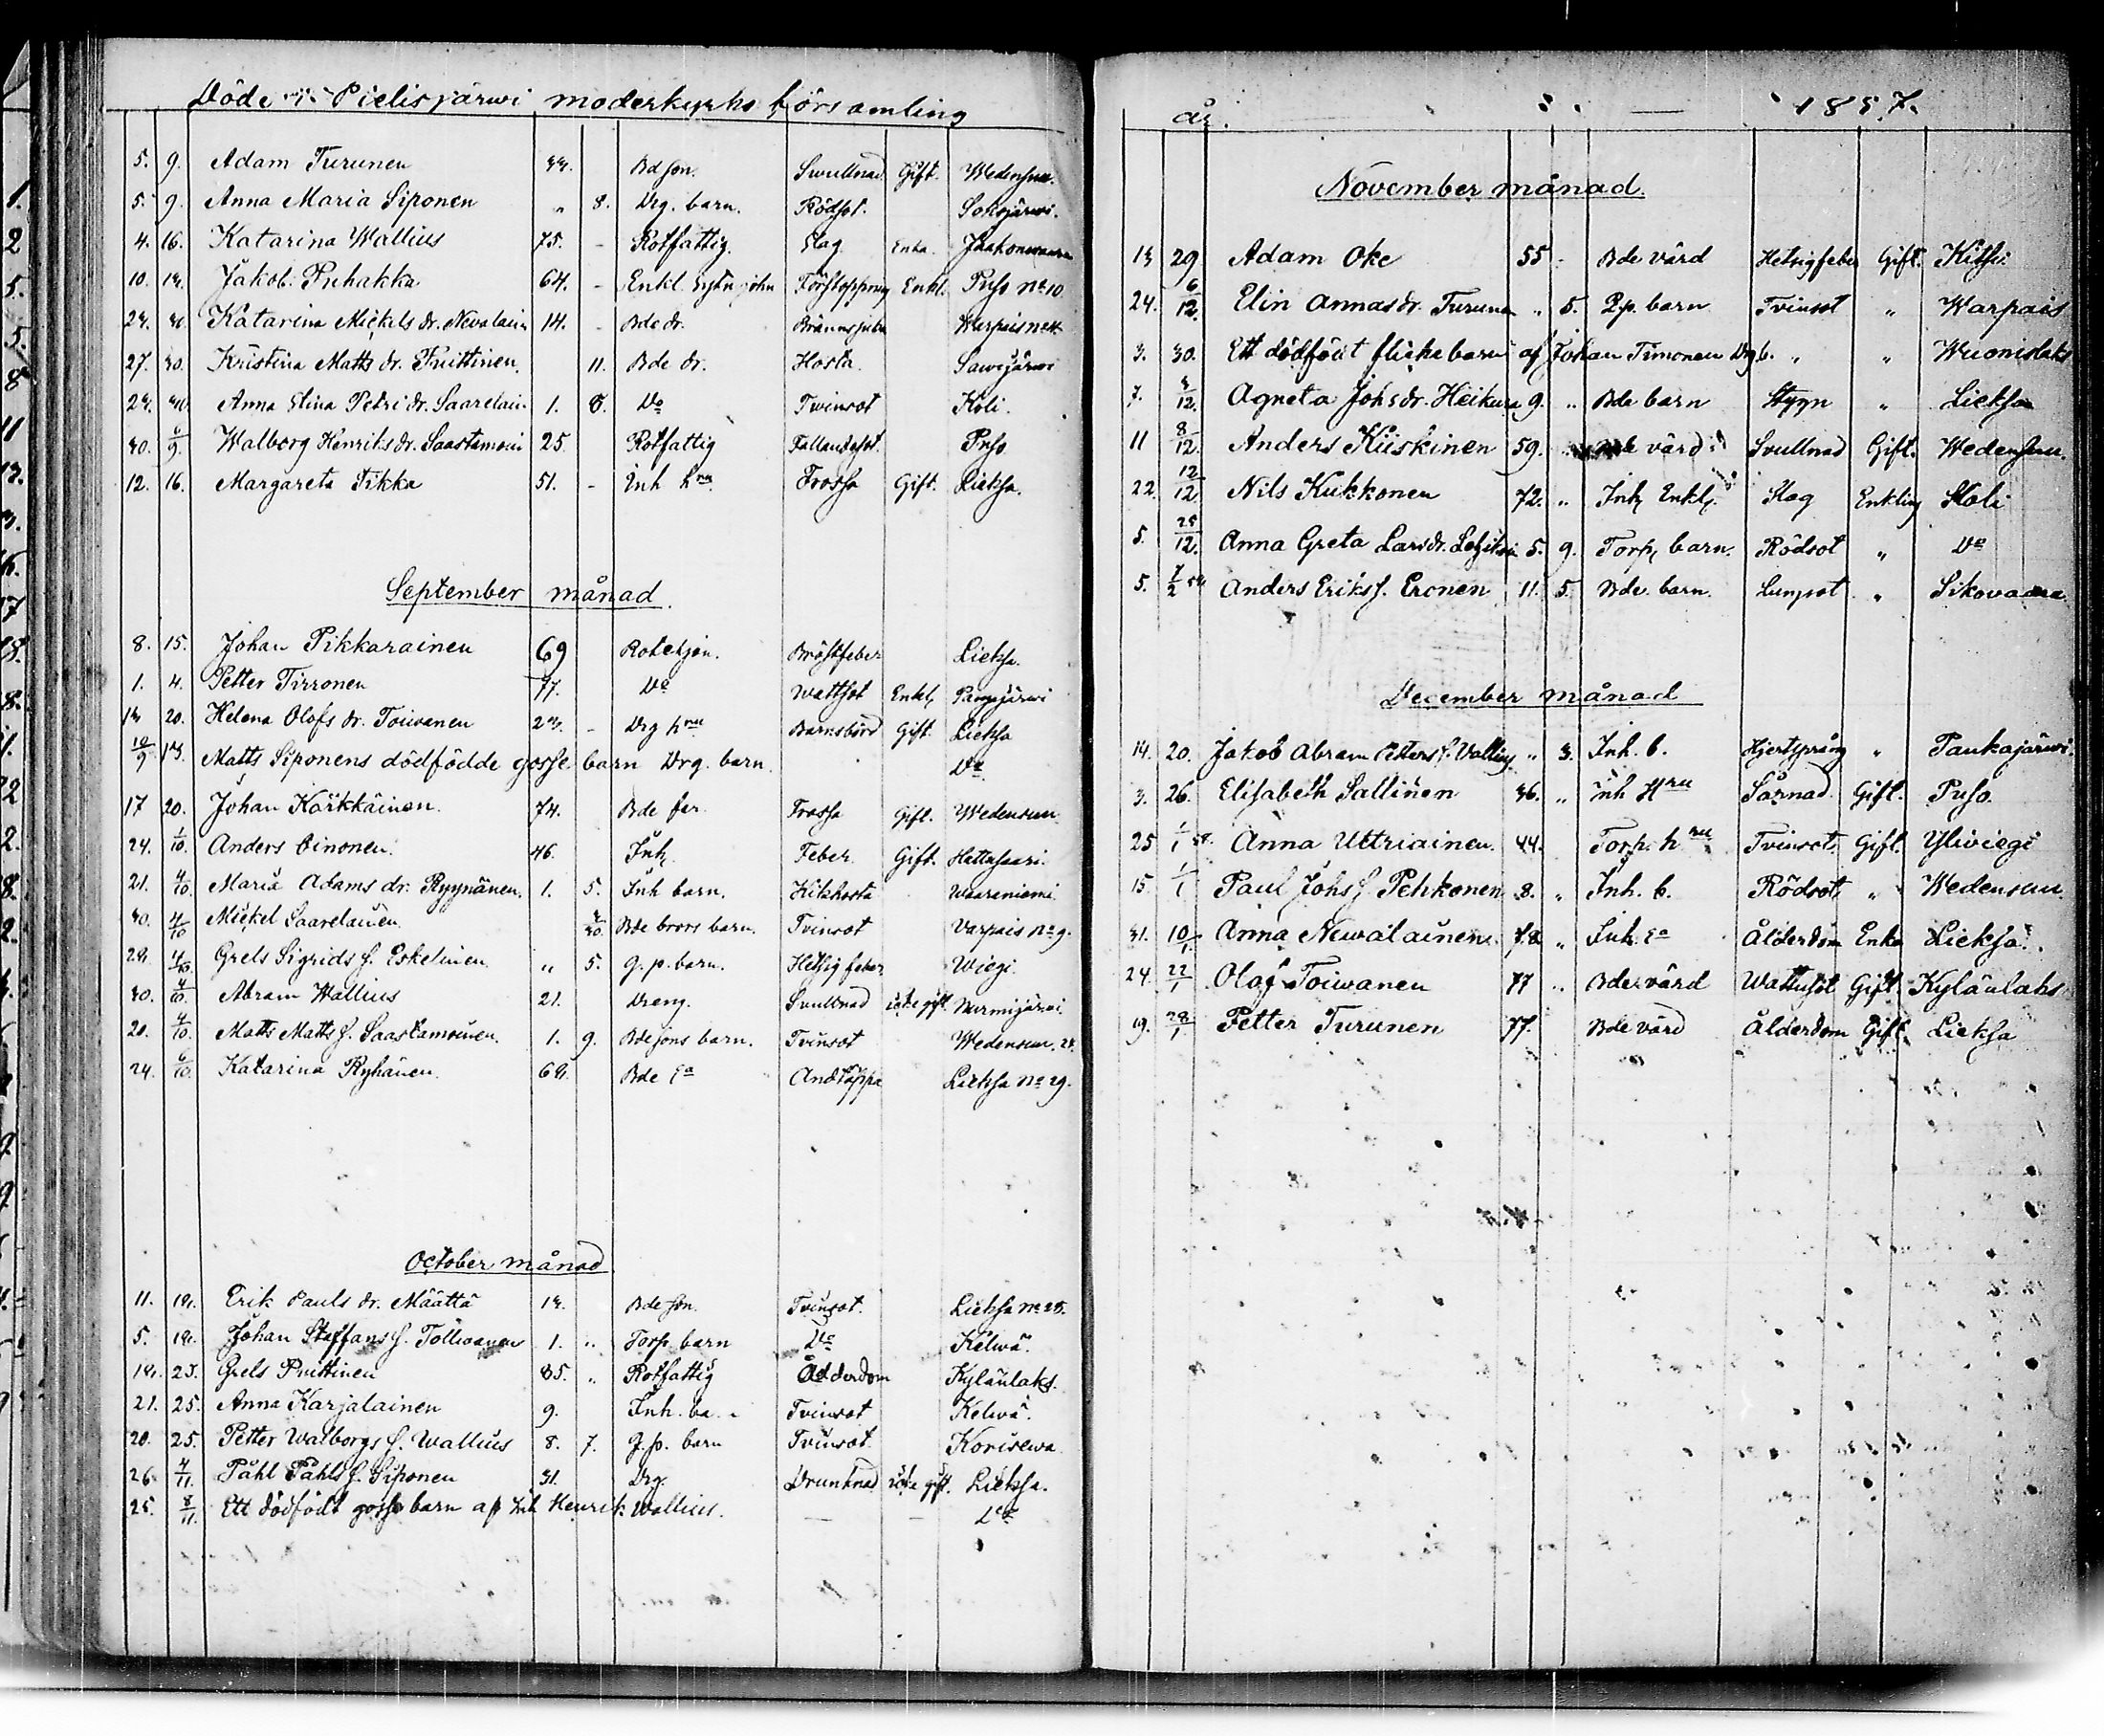 Döde i Pielisjärwi moderkyrko församling
5. 9. Adam Turunen Bdeson. Swullnad Gift. Wedensuu.
5. 9. Anna Maria Siponen " 8. Drg. barn. Rödsot. Sokojärwi.
4. 16. Katarina Wallius 75. - Rotfattig. Slag Enka. Jaakonwaara
10. Jakob Puhakka 64. - Enkl. Förstoppning Enkl. Puso No 10
Katarina Mickels dr. Nevalain 14. - Bde dr. Brännsjuka Warpais
27. 30. Kristina Matts dr. Pruittinen. 11. Bde dr. Hosta. Sawijärwi
Anna Stina Petri dr. Saarelain 1. 8. Do Twinsot Koli.
30. 6/9. Walborg Henriks dr. Saastamoin 25 Rotfattig Fallandesot. Puso
12. 16. Margareta Tikka 51. - Inh hru Frossa Gift. Lieksa.
September månad.
8. 15. Johan Pikkarainen 69 Rotehjon. Bröstfeber Lieksa.
1. 4. Petter Tirronen 77. Do Wattsot Enkl, Pangajärwi
20. Helena Olofs dr. Toiwanen - Drg hru Barnsbörd Gift. Lieksa
10/9 Matts Siponens dödfödde gosse barn Drg. barn. Do
17 20. Johan Kärkkäinen. 74. Bde far. Frossa Gift. Wedensuu.
24. 1/10. Anders Oinonen. 46. Inh. Feber. Gift. Hattusaari.
21. 4/10. Maria Adams dr. Ryynänen. 1. 5. Inh barn. Kikhosta Waaraniemi.
30. 4/10 Mickel Saarelainen. Bde brors barn. Tvinsot Varpais No 9.
4/10. Grels Sigrids s. Eskelinen. " 5. g. p. barn. Hetsig feber Wiegi.
30. 4/10. Abram Wallius 21. Dreng. Svullnad icke gift. Nurmijärwi.
20. 4/10. Matts Matts s. Saastamoinen. 1. 9. Bdesons barn. Tvinsot Wedensuu.
24. 6/10. Katarina Ryhänen. Bde Ea Andtäppa Lieksa No 29.
October månad
11. Erik Pauls dr. Määttä Bde son. Tvinsot. Lieksa No 25.
5. Johan Staffans s. Tolwanen 1. " Torp. barn Do Kelwä.
25. Grels Pruittinen 85. " Rotfattig Ålderdom Kylänlaks.
21. 25. Anna Karjalainen 9. Inh. ba. Tvinsot Kelwä.
20. 25. Petter Walborgs s. Wallius 8. 7. g. p. barn Tvinsot. Korisewa
26. 4/11. Påhl Påhls s. Siponen 31. Drg. Drunknad icke gift. Lieksa.
25. 8/11. Ett dödfödt gosse barn af Inh Henrik Wallius. — — Do
år. 1857.
November månad.
13 29 Adam Oke 55 - Bde värd Hetsigfeber Gift. Kitsi.
24. 6/12. Elin Annas dr. Turunen " 5. g.p. barn Tvinsot " Warpais
3. 30. Ett dödfödt flickebarn af Johan Timonen Drg b. " " Wuonislaks
7. 4/12. Agneta Johs dr. Heikura 9. " Bde barn Stygn " Lieksa
11 8/12. Anders Kiiskinen 59. " Bde värd Svullnad Gift. Wedensuu.
22. 12/12. Nils Kukkonen 72. " Inh Enkl. Slag Enkling Koli
5. 25/12. Anna Greta Lars dr. 5. 9. Torp, barn. Rödsot " Do
5. 7/2 58 Anders Eriks s. Eronen 11. 5. Bde. barn. Lungsot " Sikovaara
December månad
14. 20. Jakob Abram Petters s. Vallius " 3. Inh. b. Hjertsprång " Pankajärwi.
3. 26. Elisabeth Sallinen 36. " Inh Hru Sårnad Gift. Puso.
25 1/1 58. Anna Uttriainen. 44. Torp. hru Tvinsot. Gift. Yliviegi
15. 1/1 Paul Johs s. Pehkonen 8. " Inh. b. Rödsot " Wedensuu.
31. 10/1 Anna Newalainen. 78 " Inh. Ea Ålderdom Enka Lieksa.
24. 22/1 Olof Toiwanen 77 " Bde värd Wattusot Gift. Kylänlaks
19. 28/1 Petter Turunen 77. Bde värd Ålderdom Gift. Lieksa